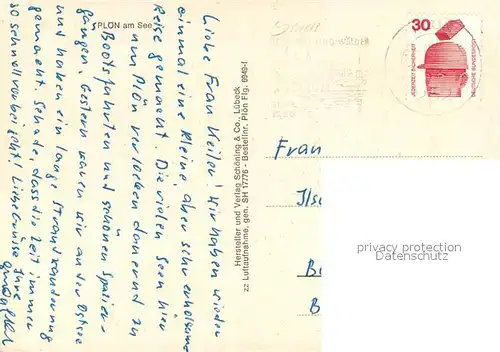 PLÖN am See
Liebe Frau Keiler! Wir haben wieder
einmal eine kleine, aber sehr erholsame
Reise gemacht. Die vielen Seen hier
um Plön verlocken dauernd zu
Bootsfahrten und schönen Spazier-
gängen. Gestern waren wir an der Ostsee
und haben ein lange Strandwanderung
gemacht. Schade, dass die Zeit immer
so schnell vorbei geht! Liebe Grüsse Ihre
Hersteller und Verlag Schöning & Co., Lübeck
zz Luftaufnahme, gen. SH 17776 - Bestellnr. Plön Flg. 6949-f
30
JEDERZEIT SICHERHEIT
DEUTSCHE BUNDESPOST
Frau
Ilse
B
privacy protection
www.ansichtskartenversand.com